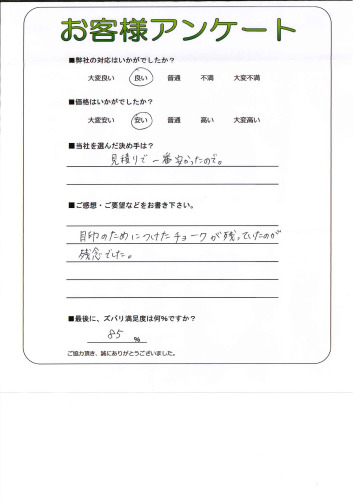 お客様アンケート
■弊社の対応はいかがでしたか？
大変良い 良い 普通 不満 大変不満
■価格はいかがでしたか？
大変安い 安い 普通 高い 大変高い
■当社を選んだ決め手は？
見積りで一番安かったので。
■ご感想・ご要望などをお書き下さい。
目印のためにつけたチョークが残っていたのが
残念でした。
■最後に、ズバリ満足度は何％ですか？
85 ％
ご協力頂き、誠にありがとうございました。